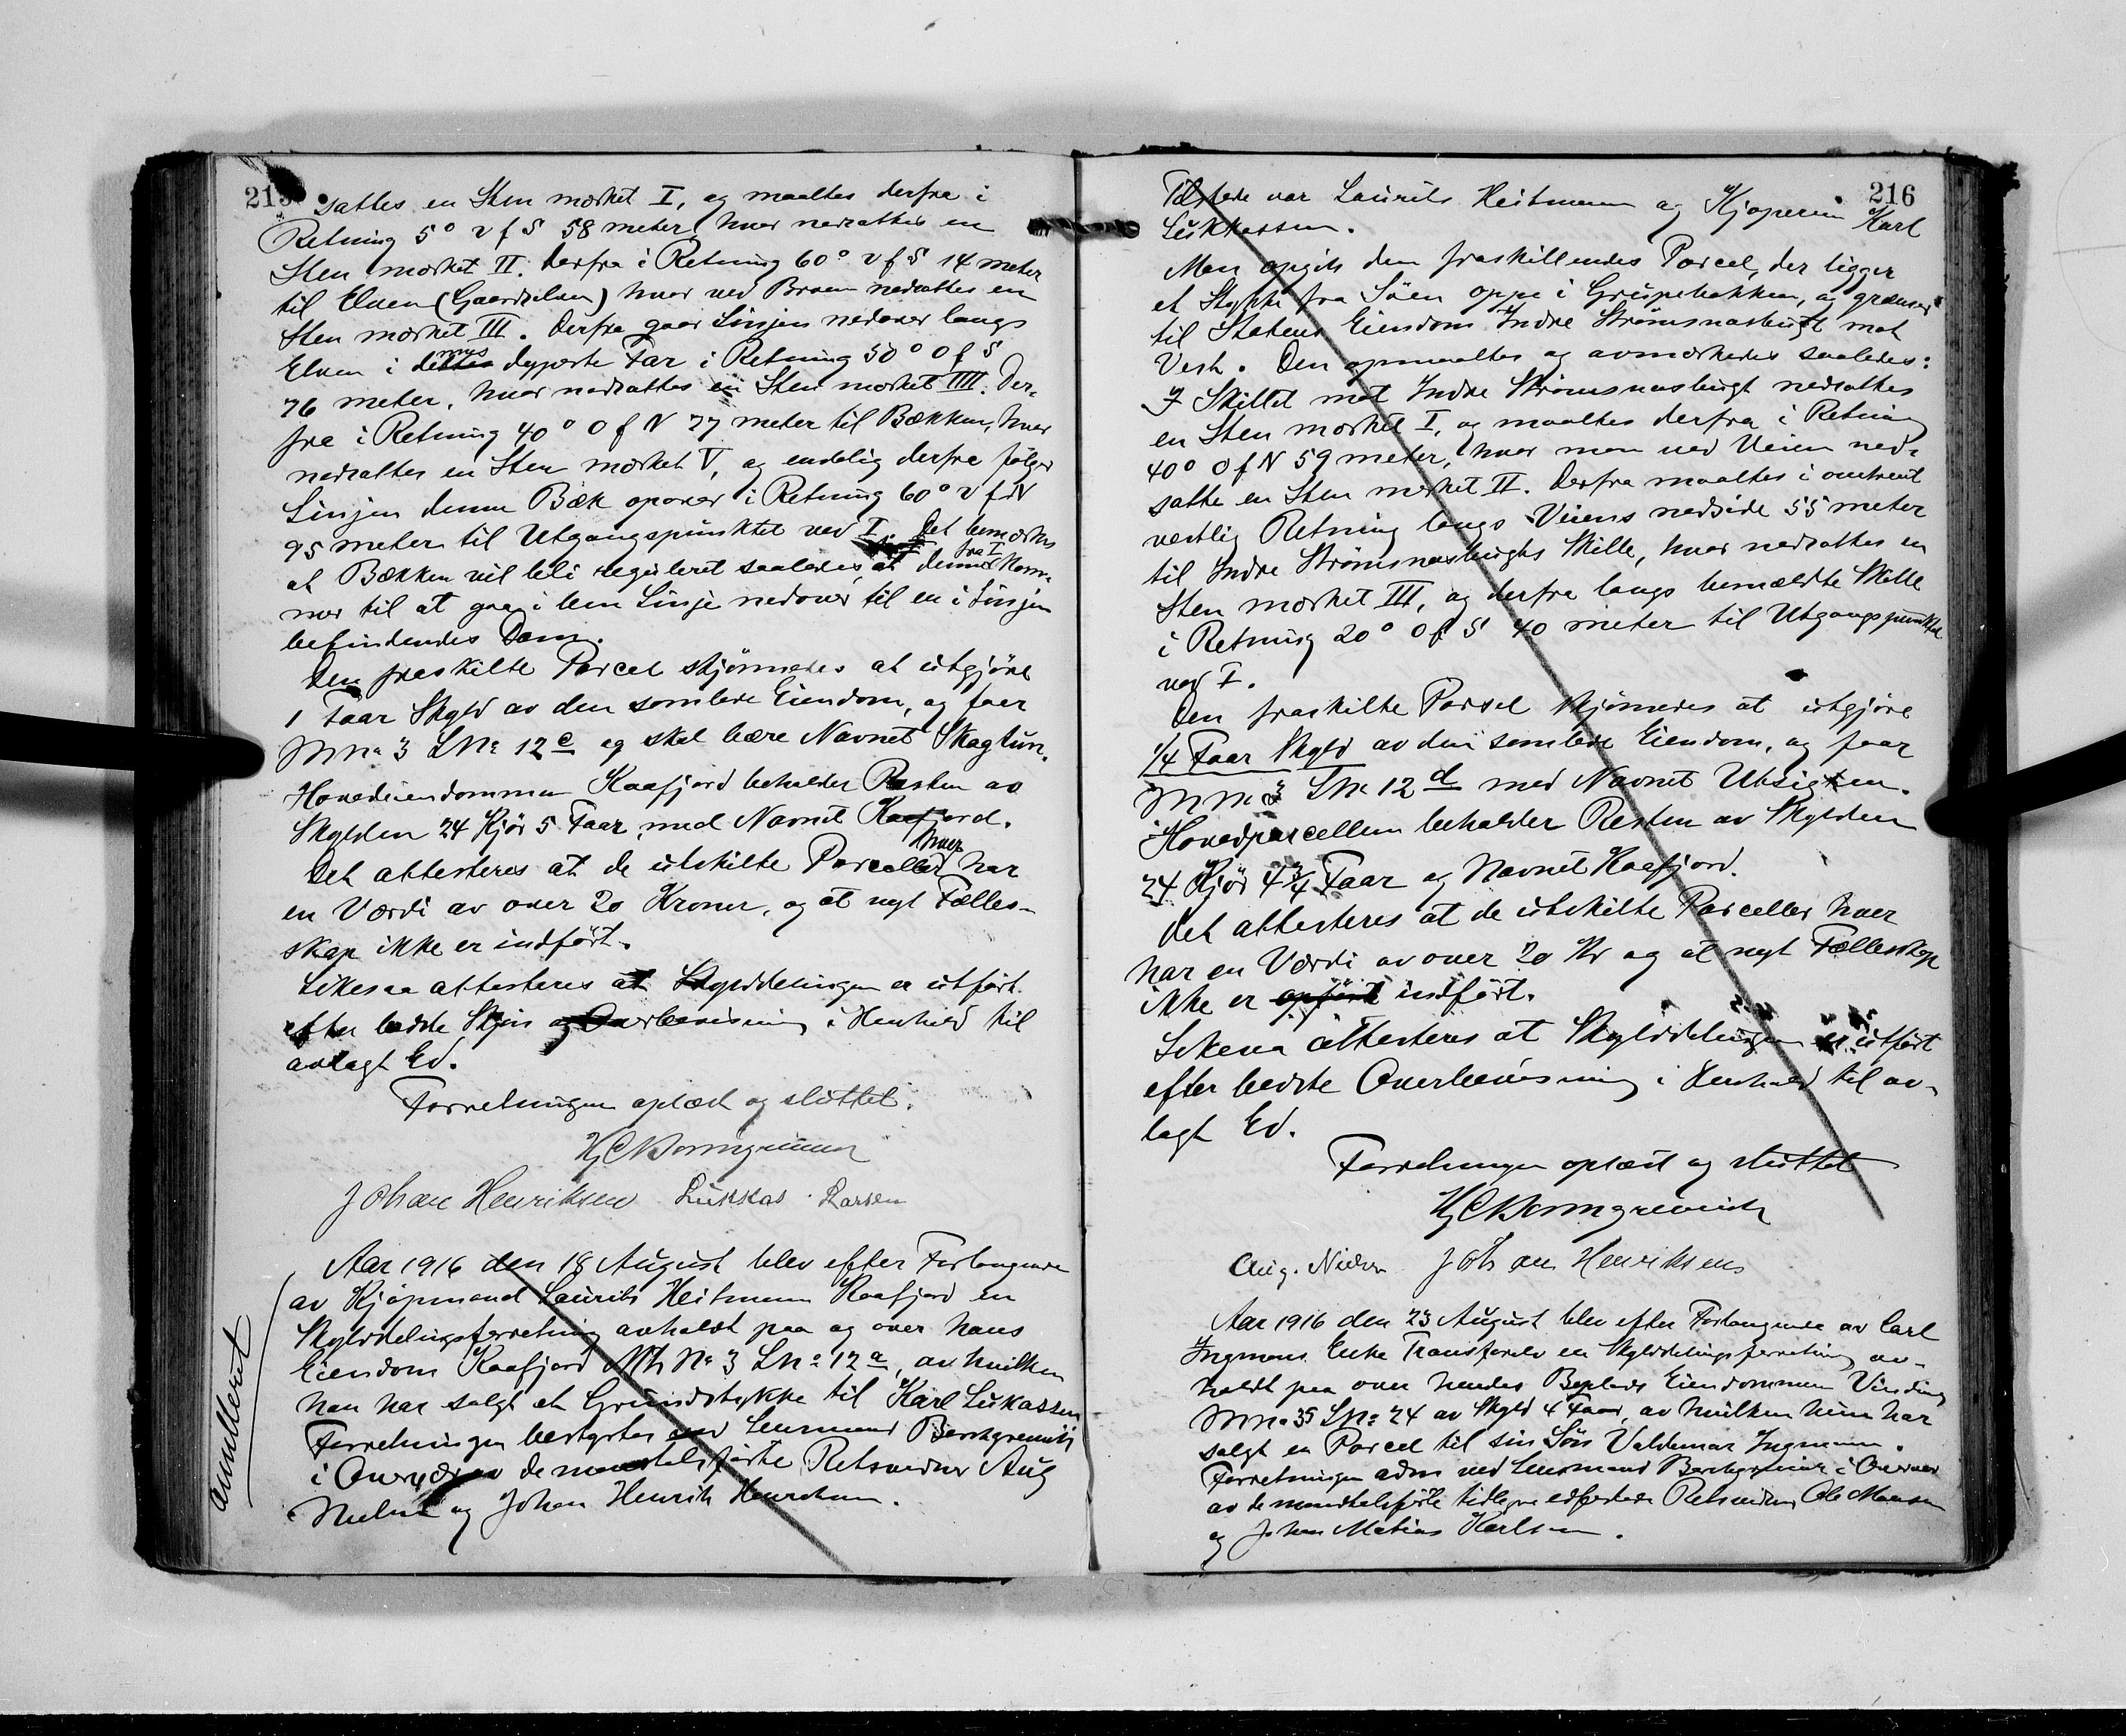 215
sattes en Sten mærket I, og maaltes derfra i
Retning 5° v f S 58 meter, hvor nedsattes en
Sten mærket II. Derfra i Retning 60° v f S 14 meter
til Elven (Gaardselven) hvor ved Broen nedsattes en
Sten mærket III. Derfra gaar Linjen nedover langs
Elven i dennes dypeste Far i Retning 50° O f S
76 meter, hvor nedsattes en Sten mærket IIII. Der-
fra i Retning 40° O f N 77 meter til Bækken, hvor
nedsattes en Sten mærket V, og endelig derfra følger
Linjen denne Bæk opover i Retning 60° v f N
95 meter til Utgangspunktet ved I. Det bemærkes
at Bækken vil bli reguleret saaledes, at denne fra I kom-
mer til at gaa i lem Linje nedover til en i Linjen
befindendes Dam.
Den fraskilte Parcel skjønnedes at utgjøre
1 Faar Skyld av den samlede Eiendom, og faar
M No 3 L No 12 c og skal bære Navnet Skagtun.
Hovedeiendommen Kaafjord beholder Resten av
Skylden 24 Kjør 5 Faar med Navnet Kaafjord.
Det attesteres at de utskilte Parceller hver har
en Værdi av over 20 Kroner, og at nyt Fælles-
skap ikke er indført.
Likesaa attesteres at Skylddelingen er utført
efter bedste Skjøn og Overbevisning i Henhold til
avlagt Ed.
Forretningen oplæst og sluttet.
Johan Henriksen Lukkas Larsen
Anulleret
Aar 1916 den 18 August blev efter Forlangende
av Kjøpmand Laurits Heitmann Kaafjord en
Skylddelingsforretning avholdt paa og over hans
Eiendom Kaafjord M No 3 L No 12 a, av hvilken
han har solgt et Grundstykke til Karl Lukassen
Forretningen bestyrtes ved Lensmand
i Overvær av de mantalsførte Retsvidner Aug
Nielsen og Johan Henrik Henriksen.
216
Tilstede var Laurits Heitmann og Kjøperen Karl
Lukkassen.
Man opgik den fraskillendes Parcel, der ligger
et Stykke fra Søen oppe i Grusbakken, og grænser
til Statens Eiendom Indre Strømsnasbugt mot
Vest. Den opmaaltes og avmærkedes saaledes:
I Skillet mot Indre Strømsnasbugt nedsattes
en Sten mærket I, og maaltes derfra i Retning
40° O f N 59 meter, hvor man ved Veien ned-
satte en Sten mærket II. Derfra maaltes i omtrent
vestlig Retning langs Veiens nedside 55 meter
til Indre Strømsnasbugts Skille, hvor nedsattes en
Sten mærket III, og derfra langs bemældte Skille
i Retning 20° O f S 40 meter til Utgangspunktet
ved I.
Den fraskilte Parsel skjønnedes at utgjøre
1/4 Faar Skyld av den samlede Eiendom, og faar
M No 3 L No 12 d med Navnet Utsigten.
Hovedparcellen beholder Resten av Skylden
24 Kjør 4 3/4 Faar og Navnet Kaafjord.
Det attesteres at de utskilte Parceller hver
har en Værdi av over 20 Kr og at nyt Fællesskap
ikke er opført indført.
Likesaa attesteres at Skylddelingen er utført
efter bedste Overbevisning i Henhold til av-
lagt Ed.
Forretningen oplæst og sluttet
Aug. Nielsen Johan Henriksens
Aar 1916 den 23 August blev efter Forlangende av Carl
Ingmans Enke Transfarelv en Skylddelingsforretning av-
holdt paa over hendes Eiendommen Vinding
M No 35 L No 24 av Skyld 4 Faar, av hvilken hun har
solgt en Parcel til sin Søn Valdemar Ingman.
Forretningen adm ved Lensmand i Overvær
av de mandtalsførte tidligere edfæstede Retsvidner Ole Monsen
og Johan Matias Karlsen.